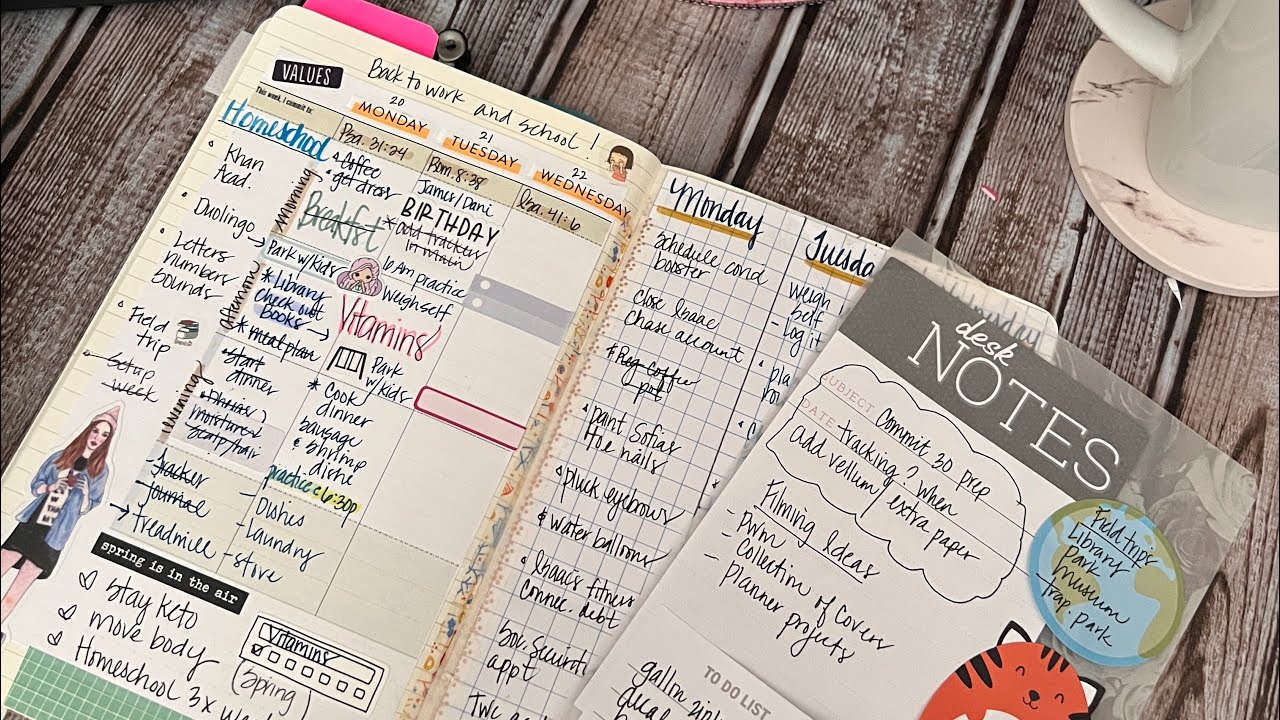 VALUES
Back to work and school!
This week, I commit to:
20
MONDAY
21
TUESDAY
22
WEDNESDAY
Homeschool
Khan
Acad.
Duolingo →
Letters
numbers
bounds
Field
trip
Setup
week
Morning
Afternoon
Evening
Psa. 31:24
Coffee
get dress
Breakfst
Park w/kids
* Library
check out
BOOKS →
* meal plan
Start
dinner
moisturize
Tracker
Journal
→ treadmill
Rom. 8:38
James/Dani
BIRTHDAY
* add trackers
in main
6 Am practice
Weigh self
Vitamins
Park
w/kids
* Cook
dinner
sausage
& shrimp
practice 6:30p
- Dishes
- Laundry
- store
Isa. 41:6
spring is in the air
stay keto
move body
Homeschool 3x
Vitamins
(Spring
Monday
Schedule covid
booster
close Isaac
Chase account
Reg coffee
pot
paint Sofias
toe nails
pluck eyebrows
water balloons
Isaacs fitness
Connec. debt
Soc. Securit
appt
Tuesda
weigh
self
- log it
desk
NOTES
SUBJECT Commit 30 prep
DATE tracking? when
add vellum/extra paper
Filming Ideas
- Pwm
- Collection of Covers
- planner projects
Field trips
Library
Park
museum
Trap. park
TO DO LIST